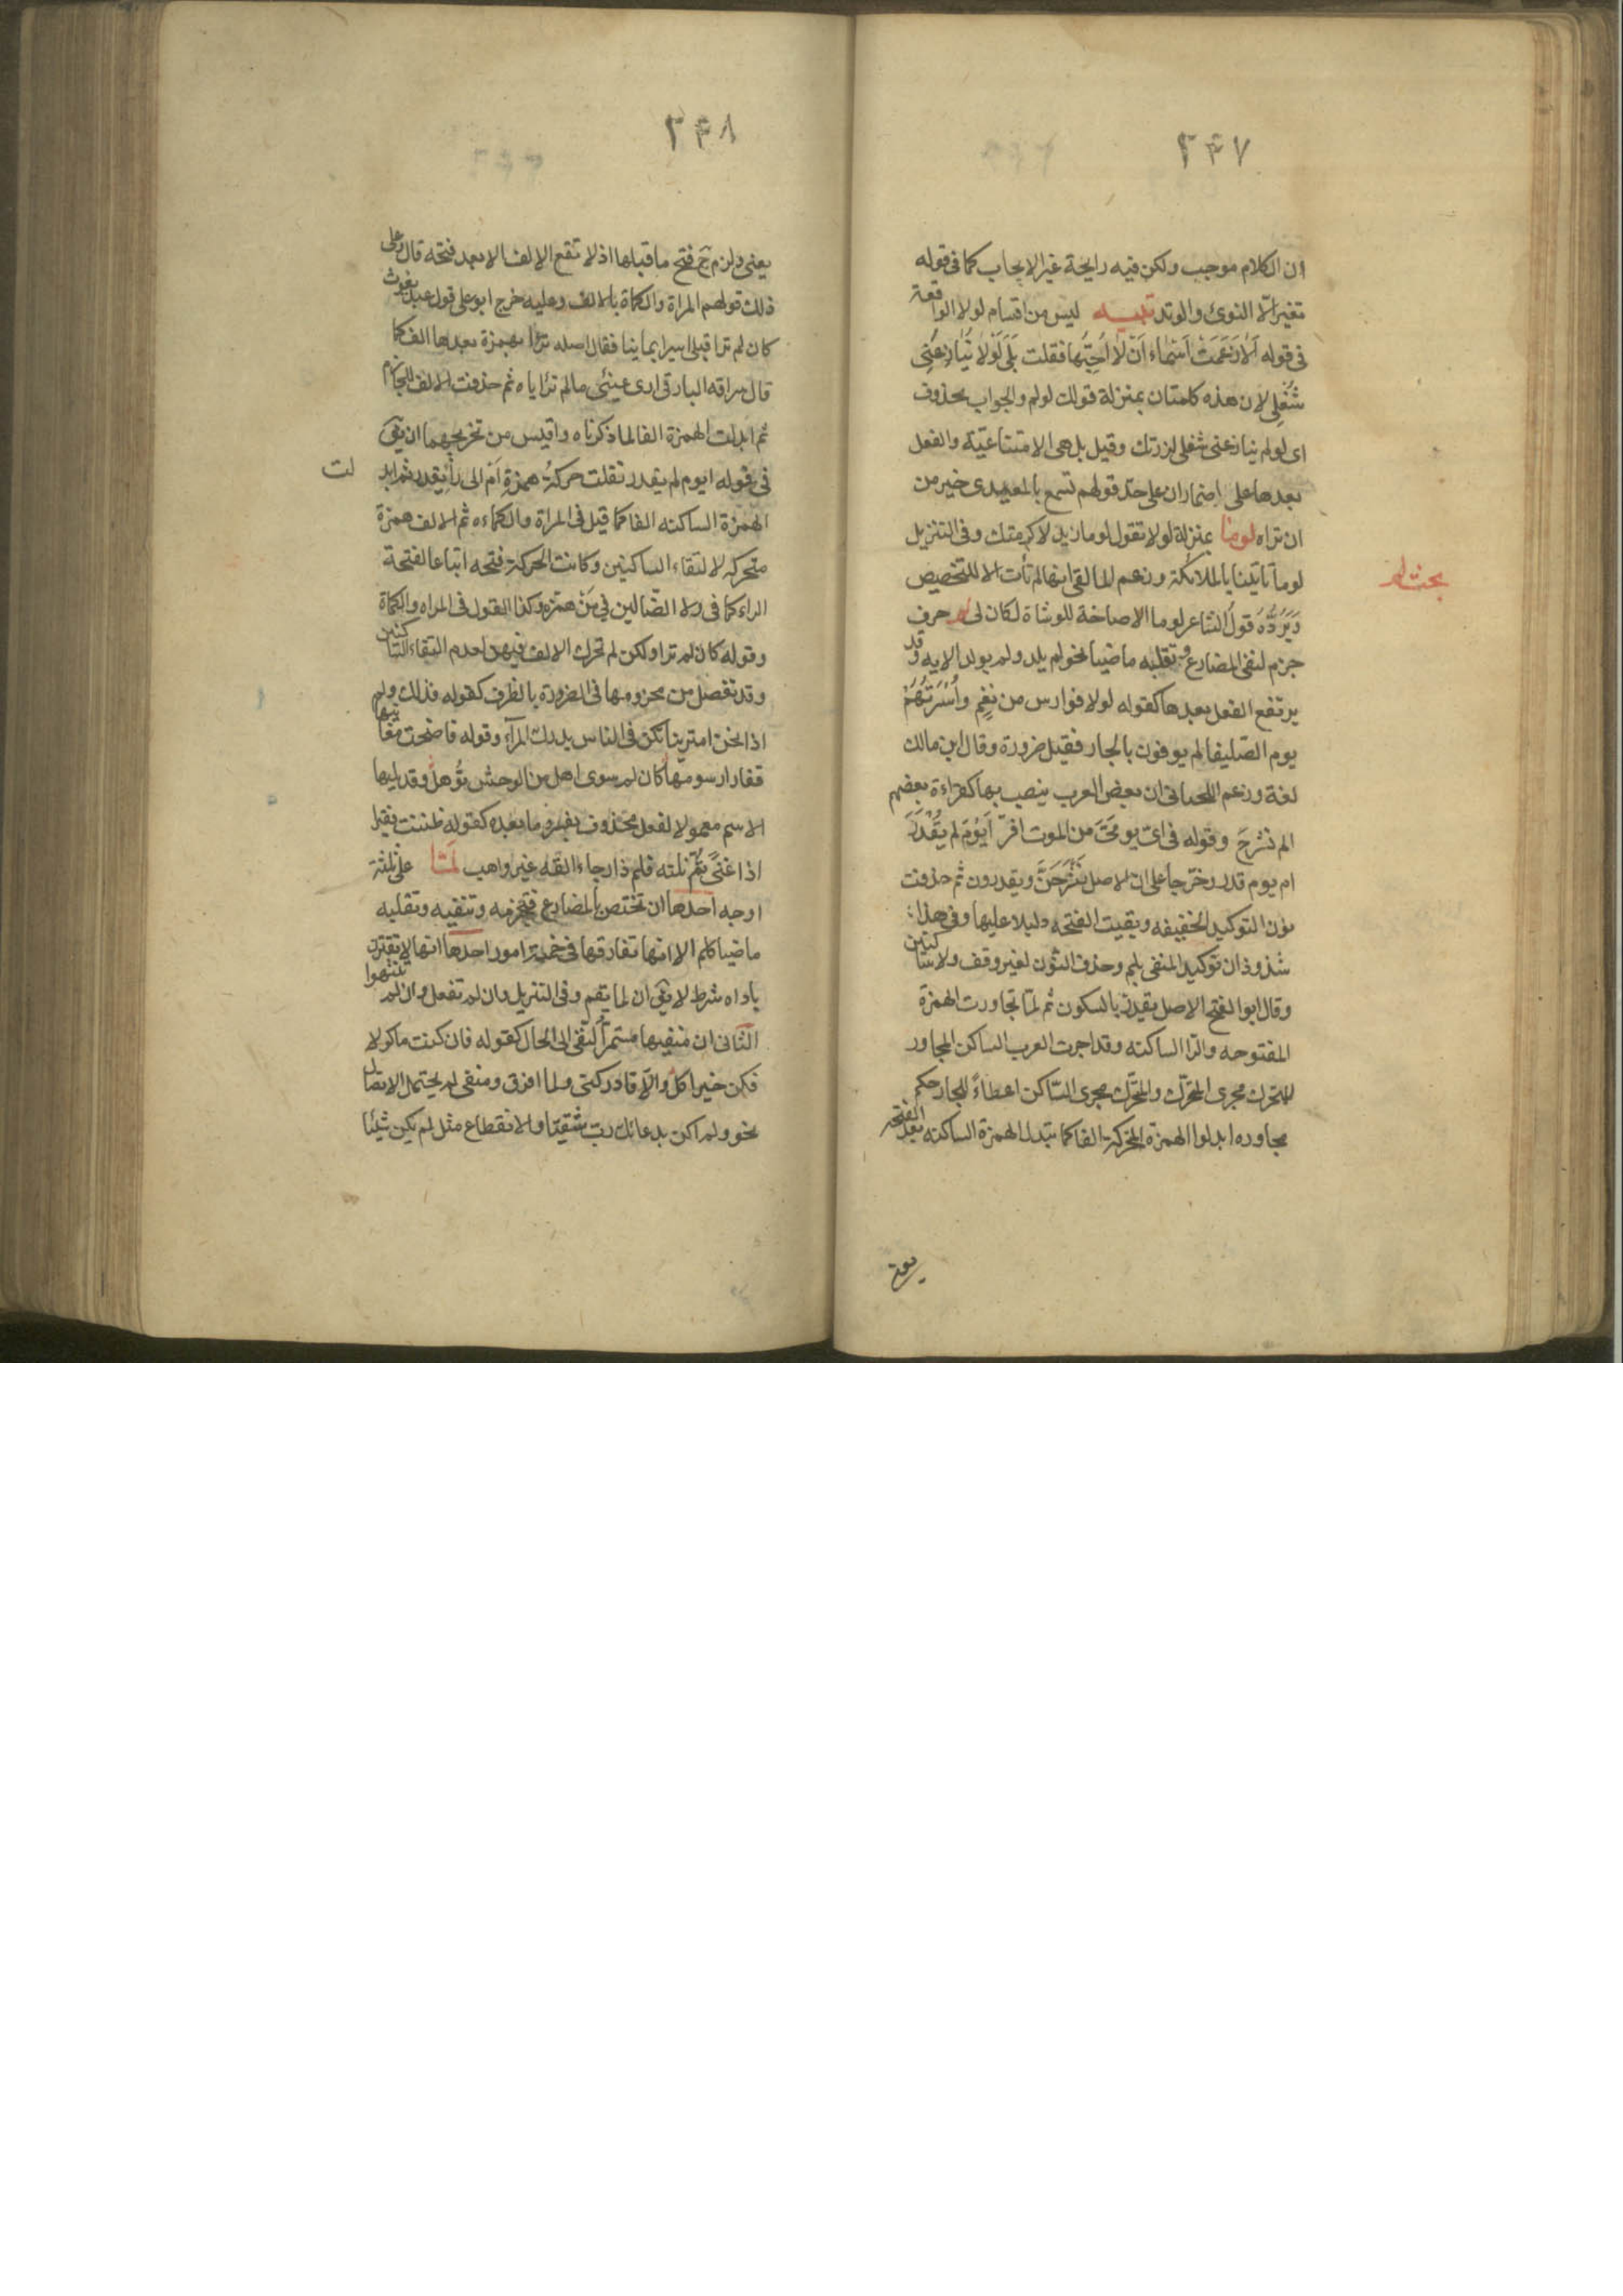 ٣٤٧
ان الكلام موجب ولكن فيه رايحة غير الايجاب كما فى قوله
تغير الّا النوئ والوتد تنبيه ليس من اقسام لولا الواقعة
فى قوله اَلاٰ زَعَمَتْ اَسْمٰاء اَنْ لاٰ اُحِبُّها فقلت بَلَى لَوْلاٰ يُنٰازِعُنِى
شُغْلِى لان هذه كلمتان بمنزلة قولك لو لم والجواب محذوف
اى لو لم ينازعنى شغلى لزرتك وقيل بل هى الامتناعيّة والفعل
بعدها على اضمار ان على حدّ قولهم تسمع بالمعيدى خير من
ان تراه لوما بمنزلة لولا تقول لوما زيد لاكرمتك وفى التنزيل
لوما تاتينا بالملائكة وزعم المالقى انها لم تأت الا للتحضيض
وَيَرُدُّهُ قولُ الشاعر لوما الاصاخة للوشاة لكان لى لم حرف
بحث لم
جزم لنفى المضارع وتقلبه ماضيا نحو لم يلد ولم يولد الايه وقد
يرتفع الفعل بعدها كقوله لولا فوارس من نعْمٍ واُسْرَتُهُمْ
يوم الصّليفا لم يوفون بالجار فقيل ضرورة وقال ابن مالك
لغة وزعم اللحيانى ان بعض العرب ينصب بها كقراءة بعضهم
الم نشرحَ وقوله فى اىّ يومَىَّ من الموت افرّ اَيَوْمَ لم يُقْدَرَ
ام يوم قدر وخرجا على ان الاصل نَشْرَحَنَّ ويقدرون ثم حذفت
نون التوكيد الخفيفه وبقيت الفتحه دليلا عليها وفى هذا
شذوذان توكيد المنفى بلم وحذف النّون لغير وقف ولا ساكنين
وقال ابو الفتح الاصل يقدر بالسكون ثم لمّا تجاورت الهمزة
المفتوحه والرّا الساكنه وقد اجرت العرب الساكن المجاور
للمتحرك مجرى المتحرّك والمتحرّك مجرى السّاكن اعطاءً للجار حكم
مجاوره ابدلوا الهمزة المتحركة الفا كما تبدل الهمزة الساكنه بعد الفتحه
٣٤٨
يعنى ولزم ح فتح ما قبلها اذ لا تقع الالف الا بعد فتحه قال وعلى
ذلك قولهم المراة والكماة بالالف وعليه خرج ابو على قول عبد يغوث
كان لم ترا قبلى اسيرا يمانيا فقال اصله ترأا بهمزة بعدها الف كما
قال سراقه البارقى ارى عينىّ ما لم ترأياه ثم حذفت الالف للجازم
ثم ابدلت الهمزة الفا لما ذكرناه واقيس من تخريجهما ان يقى
فى قوله ايوم لم يقدر نقلت حركة همزةِ اَمْ الى رأ يقدر ثم ابدلت
الهمزة الساكنه الفا كما قيل فى المراة والكماءه ثم الالف همزة
متحركه لالتقاء الساكنين وكانت الحركة فتحه اتباعا لفتحة
الراء كما فى ولا الضّالين فى مَنْ همزه وكذا القول فى المراه والكماة
وقوله كان لم ترا ولكن لم تحرك الالف فيهن لعدم التقاء السّاكنين
وقد تفصل من مجزومها فى الضرورة بالظرف كقوله فذاك ولم
اذا نحن امترينا تكن فى الناس يدرك المرآء وقوله فاضحت مغانيها
قفارا رسومها كان لم سوى اهل من الوحش تؤهل وقد يليها
الاسم معمولا لفعل محذوف يفسره ما بعده كقوله ظننت فقيرا
اذا غنىً ثم نلته فلم ذا رجاء القه غير واهب لمّا على ثلثة
اوجه احدها ان تختص بالمضارع فتجزمه وتنفيه وتقلبه
ماضيا كلم الا انها تفارقها فى خمسة امور احدها انها لا تقترن
باداه شرط لا يقى ان لما يقم وفى التنزيل وان لم تفعل وان لم تنتهوا
الثانى ان منفيها مستمرّ النفى الى الحال كقوله فان كنت ماكولا
فكن خير اكل والّا فادركنى ولما امزق ومنفى لم يحتمل الاتصال
نحو ولم اكن بدعائك ربّ شقيّا والانقطاع مثل لم يكن شيئا